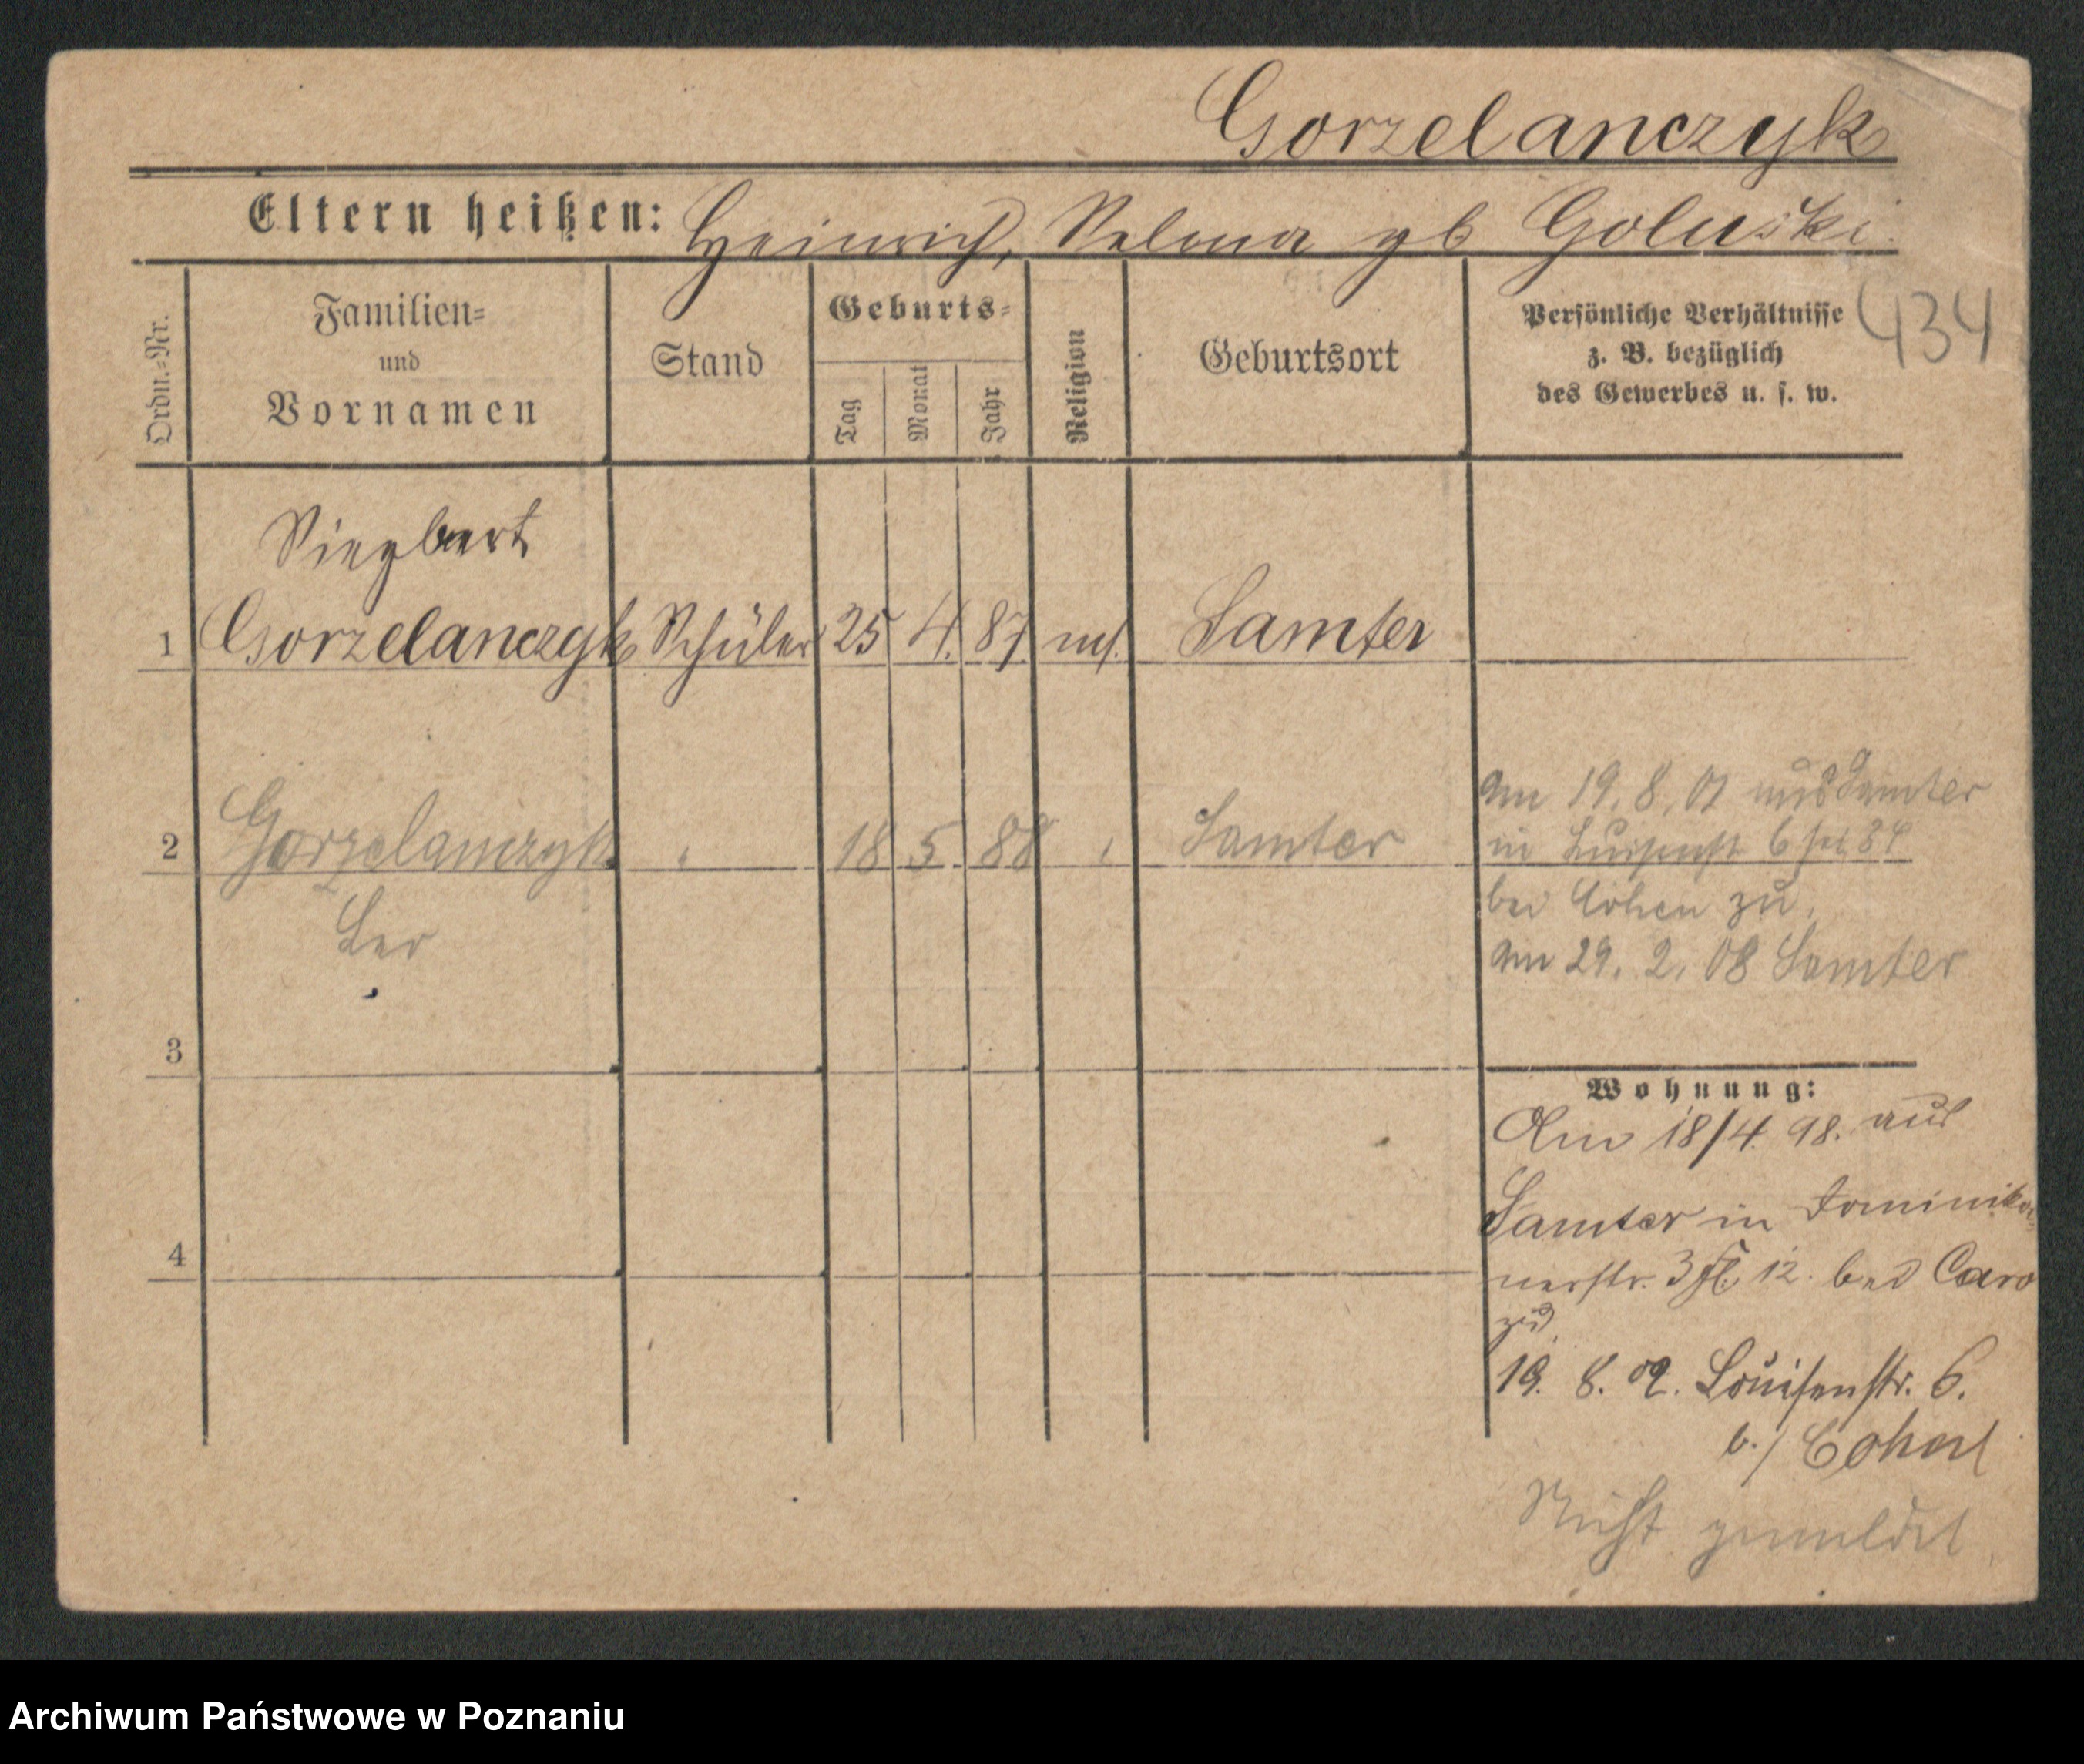 Gorzelanczyk
Eltern heißen: Heinrich, Selma gb Goluski
434
Ordn.=Nr.
Familien=
und
Vornamen
Stand
Geburts=
Tag
Monat
Jahr
Religion
Geburtsort
Persönliche Verhältnisse
z. B. bezüglich
des Gewerbes u. s. w.
Siegbert
1 Gorzelanczyk Schüler 25 4. 87 Samter
2 Gorzelanczyk " 18 5. 88 Samter
Leo
am 19. 8. 01 aus Samter
in 6
bei Cohen zu.
am 29. 2. 08 Samter
3
4
Wohnung:
Am 18/4. 98. aus
Samter in Dominika
nerstr. 3 12. bei Caro
zu.
19. 8. Louisenstr. 6.
b./ Cohen
Nicht gemeldet.
Archiwum Państwowe w Poznaniu